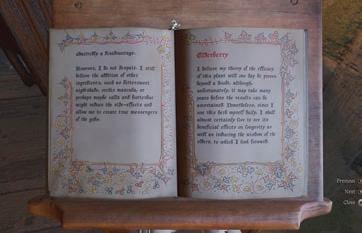 admittedly a disadvantage.
However, I do not despair. I still
believe the addition of other
ingredients, such as bittersweet
nightshade, orchis mascula, or
perhaps maybe salts and
might reduce the side-effects and
allow me to create true messengers
of the gods.
Elderberry
I believe my theory of the efficacy
of this plant will one day be proven
beyond a doubt, although,
unfortunately, it may take many
years before the results can be
ascertained. Nonetheless, since I
use this herb myself daily, I shall
almost certainly live to see its
beneficial effects on longevity as
well as inducing the wisdom of the
elders, to which I look forward.
Previous
Next
Close